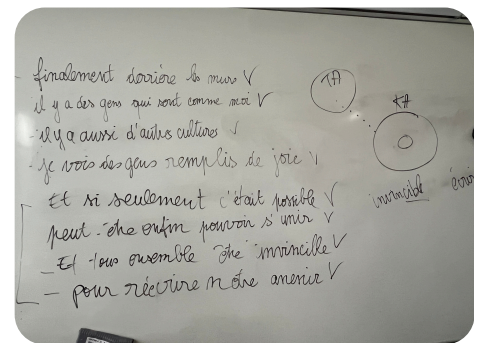 - finalement derrière les murs √
il y a des gens qui sont comme moi √
- il y a aussi d'autres cultures √
- je vois des gens remplis de joie √
Et si seulement c'était possible √
peut-être enfin pouvoir s'unir √
- Et tous ensemble être invincille √
- pour réécrire notre avenir √
TA
KA
invincible